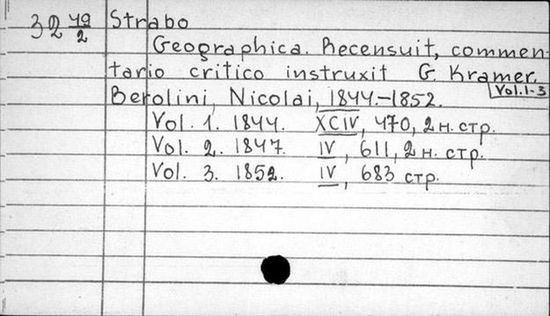 32 49/2 Strabo
Geographica. Recensuit, commen-
tario critico instruxit G. Kramer.
Vol. 1-3
Berolini, Nicolai, 1844.-1852.
Vol. 1. 1844. XCIV, 470, 2 н. стр.
Vol. 2. 1847. IV, 611, 2 н. стр.
Vol. 3. 1852. IV, 683 стр.